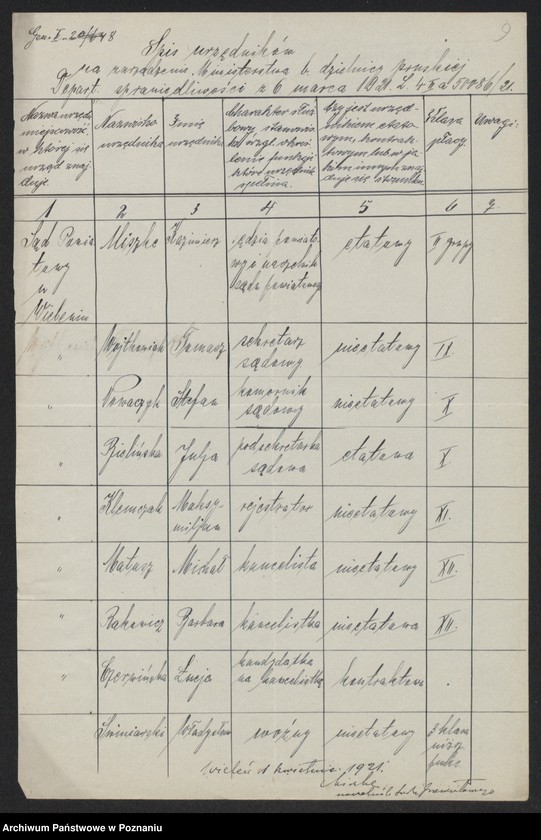 Gen. I.
9
Spis urzędników
na zarządzenie Ministerstwa b. dzielnicy pruskiej
Depart. sprawiedliwości z 6 marca
Nazwa urzędu
miejscowość,
w której się
urząd znaj
duje.
Nazwisko
urzędnika
Imię
urzędnika
Charakter służ
bowy, stanowis
czy jest urzęd
nikiem etato
wym, kontrak
towym lub w ja
kim innym znaj
duje się stosunku.
Klasa
płacy.
Uwagi.
1 2 3 4 5 6 7.
Sąd Powia
towy
w
Wieleniu
Miszke
Kazimierz
sędzia powiato
wy i naczelnik
sądu powiatowego
etatowy
II grupy
" Wojtkowiak Tomasz
sekretarz
sądowy
nieetatowy
" Nowaczyk Stefan
komornik
sądowy
nieetatowy
X
" Bielińska Julja
podsekretarka
sądowa
etatowa
X
" Klemczak
Maksy-
miljan
rejestrator nieetatowy XI.
" Matusz Michał kancelista nieetatowy XII.
" Rakowicz Barbara kancelistka nieetatowa XII.
" Czerwińska Łucja
kandydatka
na kancelistkę
kontraktowa
Władysław woźny nieetatowy
3 klasa
niżej
funkc.
Wieleń kwietnia 1921.
Miszke
naczelnik Sądu Powiatowego
Archiwum Państwowe w Poznaniu